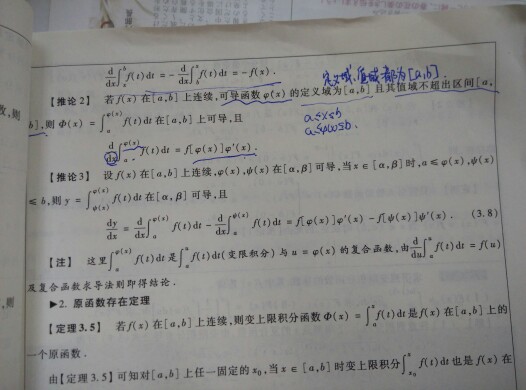 d/dx ∫_x^b f(t)dt = - d/dx ∫_b^x f(t)dt = -f(x).
定义域、值域都为[a,b].
【推论2】 若f(x)在[a,b]上连续,可导函数φ(x)的定义域为[a,b]且其值域不超出区间[a,
b],则Φ(x) = ∫_a^{φ(x)} f(t)dt在[a,b]上可导,且
a≤x≤b
a≤φ(x)≤b.
d/dx ∫_a^{φ(x)} f(t)dt = f[φ(x)]φ′(x).
【推论3】 设f(x)在[a,b]上连续,φ(x),ψ(x)在[α,β]可导,当x∈[α,β]时,a≤φ(x),ψ(x)
≤b,则y = ∫_{ψ(x)}^{φ(x)} f(t)dt在[α,β]可导,且
dy/dx = d/dx ∫_a^{φ(x)} f(t)dt - d/dx ∫_a^{ψ(x)} f(t)dt = f[φ(x)]φ′(x) - f[ψ(x)]ψ′(x). (3.8)
【注】 这里∫_a^{φ(x)} f(t)dt是∫_a^u f(t)dt(变限积分)与u=φ(x)的复合函数,由d/du ∫_a^u f(t)dt = f(u)
及复合函数求导法则即得结论.
▶2. 原函数存在定理
【定理3.5】 若f(x)在[a,b]上连续,则变上限积分函数Φ(x) = ∫_a^x f(t)dt是f(x)在[a,b]上的
一个原函数.
由【定理3.5】可知对[a,b]上任一固定的x₀,当x∈[a,b]时变上限积分∫_{x₀}^x f(t)dt也是f(x)在
数,则
则